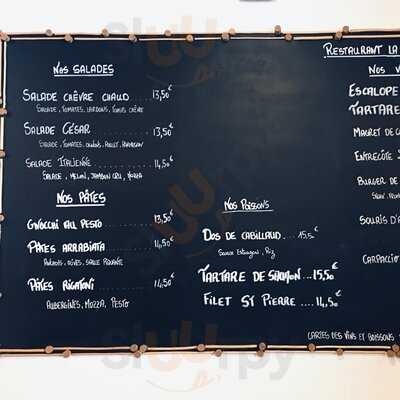 RESTAURANT LA
NOS SALADES
SALADE CHÈVRE CHAUD .... 13,50€
SALADE, TOMATES, LARDONS, TOASTS CHÈVRE
SALADE CÉSAR ........ 13,50€
SALADE, TOMATES, POULET, PARMESAN
SALADE ITALIENNE ........ 14,50€
SALADE, MELON, JAMBON CRU,
NOS PÂTES
GNOCCHI AU PESTO ........ 13,50€
PÂTES ARRABIATA ........ 14,50€
OLIVES, SAUCE PIQUANTE
PÂTES RIGATONI ........ 14,50€
AUBERGINES, MOZZA, PESTO
NOS POISSONS
DOS DE CABILLAUD.... 15,5€
SAUCE ESTRAGON, RIZ
TARTARE DE SAUMON...15,50€
FILET ST PIERRE .... 14,50€
NOS V
ESCALOPE
TARTARE
MAGRET DE C
ENTRECÔTE
BURGER DE
SOURIS D'A
CARPACCIO
CARTES DES VINS ET BOISSONS